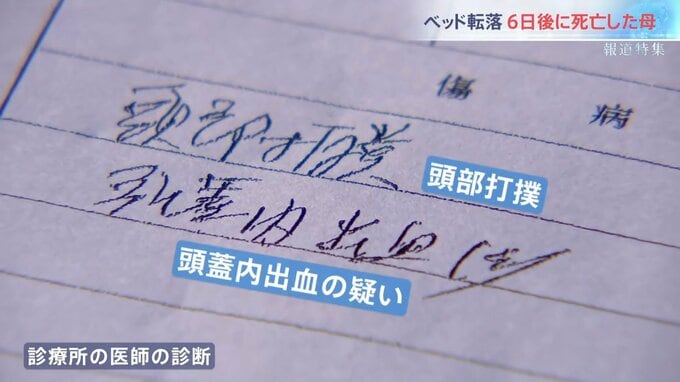 ベッド転落 6日後に死亡した母
報道特集
傷病
頭部打撲
頭部打撲
頭蓋内出血(疑)
頭蓋内出血の疑い
診療所の医師の診断